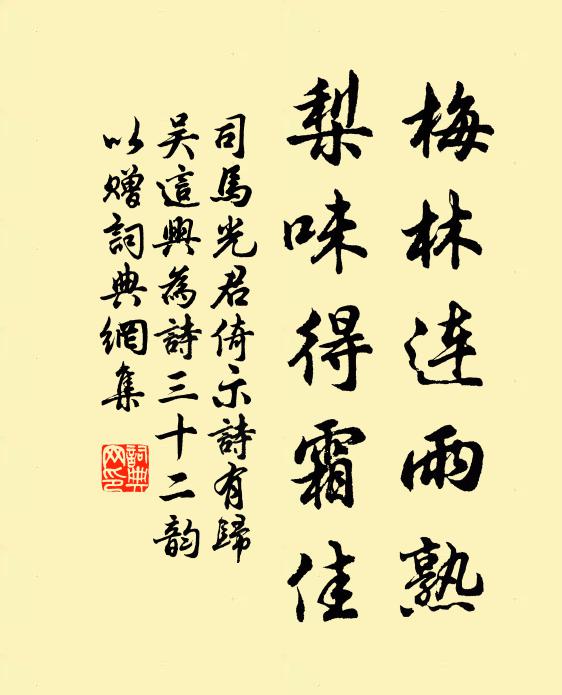 梅林連雨熟
梨味得霜佳
司馬光君倚示詩有歸
吴這興為詩三十二韵
以贈詞典網集
詞典網印